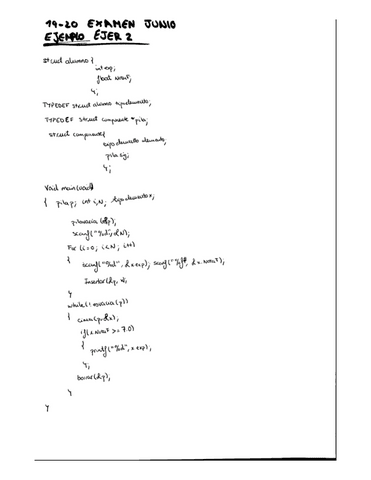 19-20 EXAMEN JUNIO
EJEMPLO EJER 2
struct alumno {
int exp;
float nota;
};
TYPEDEF struct alumno tipoelemento;
TYPEDEF struct componente *pila;
struct componente{
tipoelemento elemento;
pila sig;
};
Void main(void)
{ pila p; int i,N; tipoelemento x;
pilavacia (&p);
scanf("%d", &N);
For (i=0; i<N; i++)
{
scanf("%d", &x.exp); scanf("%f", &x.nota);
Insertar(&p, x);
}
while(!esvacia(p))
{ cima(p,&x);
if(x.nota >= 7.0)
{ printf("%d", x.exp);
};
borrar(&p);
}
}